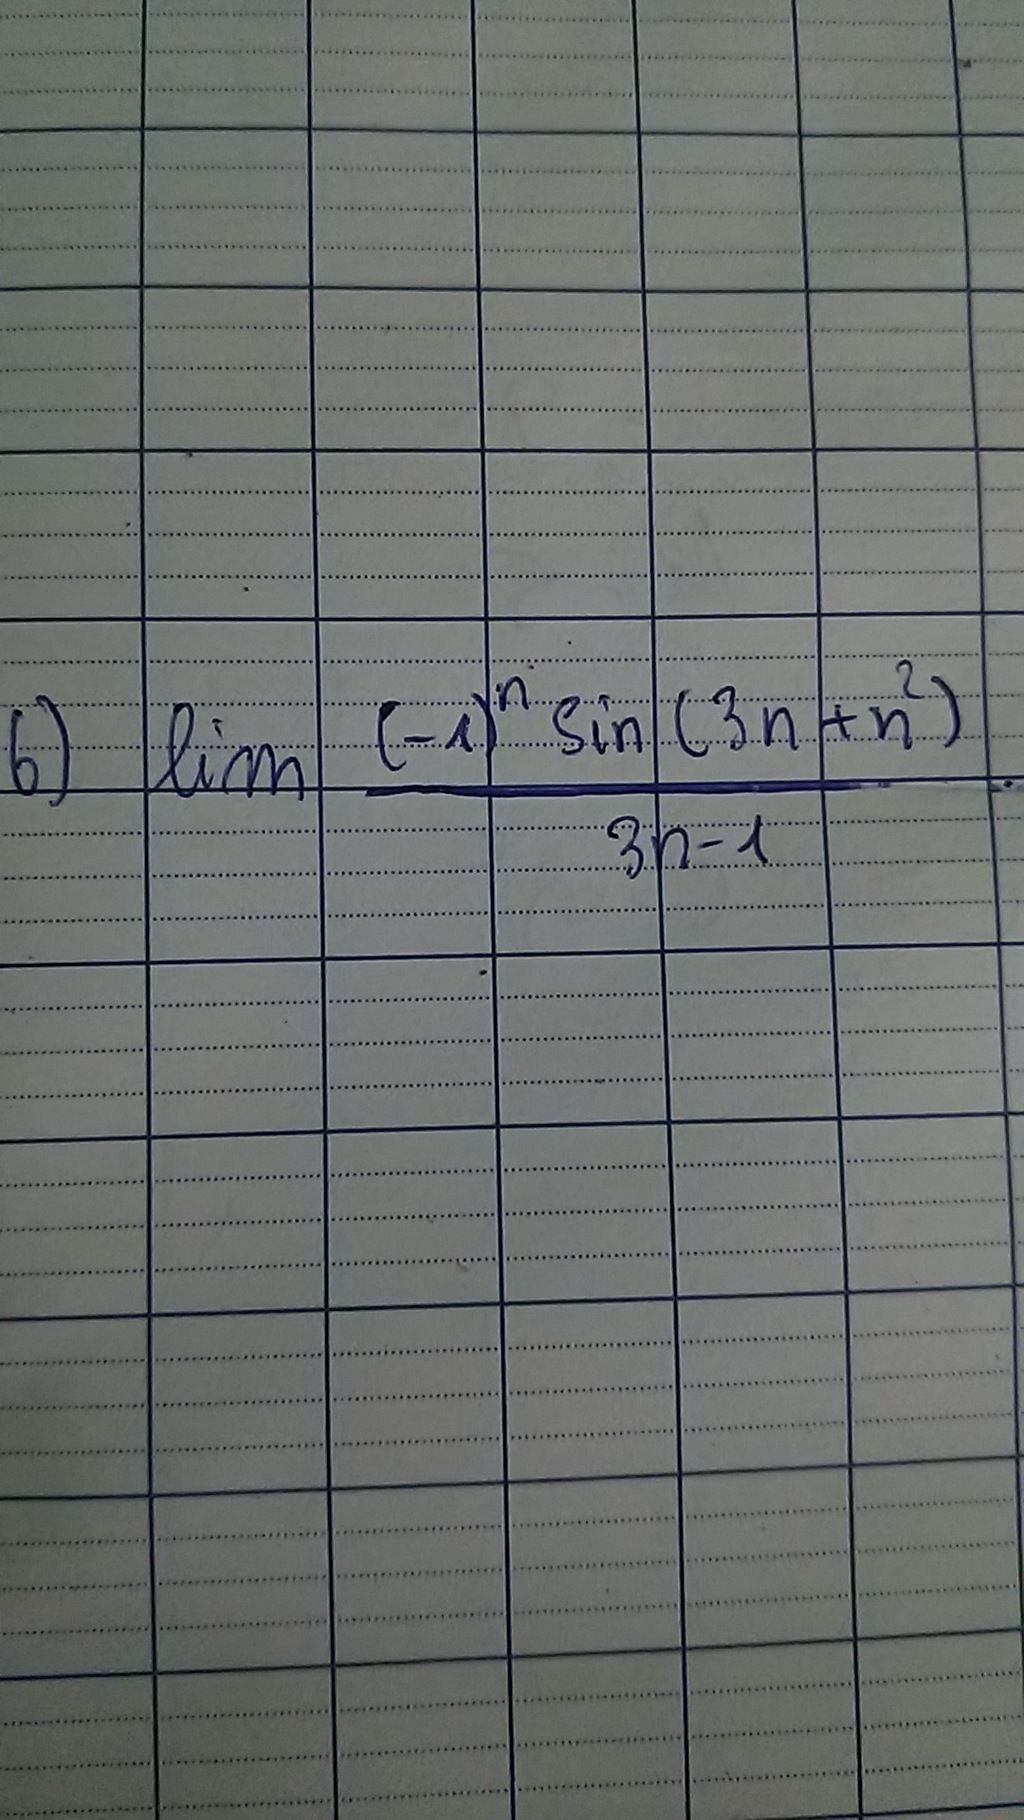 6) lim (-1)^n sin(3n+n²)
3n-1